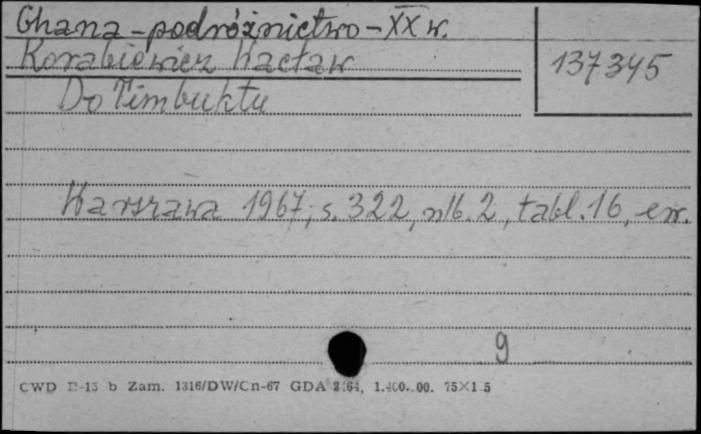 Ghana - podróżnictwo - XX w.
Korabiewicz Wacław
137345
Do Timbuktu
Warszawa 1967, s. 322, nlb. 2, tabl. 16, err.
9
CWD E-15 b Zam. 1316/DW/Cn-67 GDA 64, 75×1 5